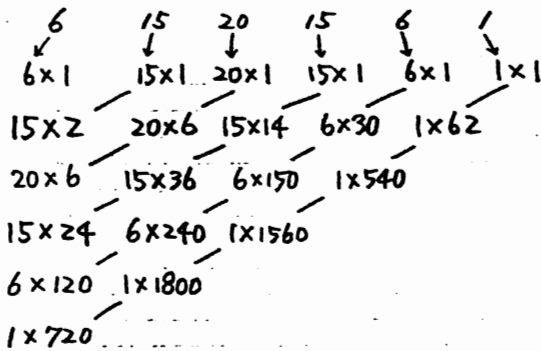 6 15 20 15 6 1
6×1 15×1 20×1 15×1 6×1 1×1
15×2 20×6 15×14 6×30 1×62
20×6 15×36 6×150 1×540
15×24 6×240 1×1560
6×120 1×1800
1×720